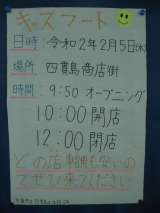 キッズマート
日時 令和2年2月5日(水)
場所 四貫島商店街
時間 9:50 オープニング
10:00 開店
12:00 閉店
どの店
ぜひ来てください